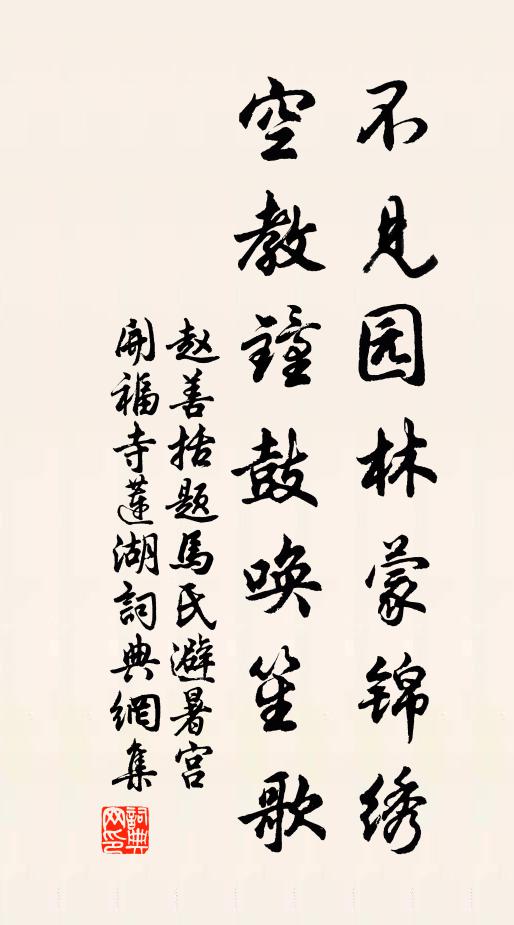 不见园林蒙锦绣
空教鐘鼓唤笙歌
赵善括题馬氏避暑宫
開福寺蓮湖詞典網集
詞典
网印